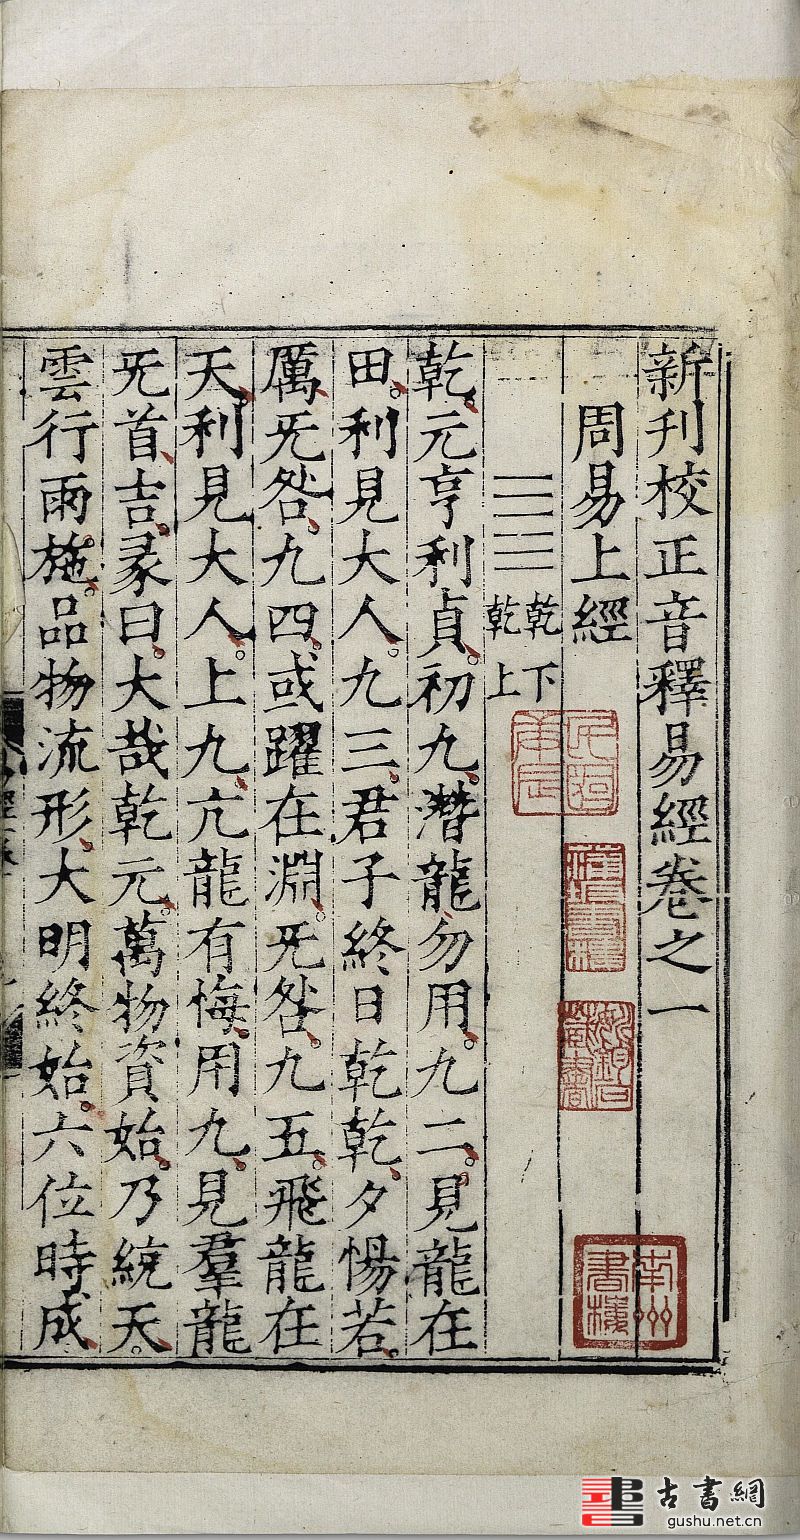 新刊校正音釋易經卷之一
周易上經
乾下
乾上
乾元亨利貞初九潛龍勿用九二見龍在
田利見大人九三君子終日乾乾夕惕若
厲旡咎九四或躍在淵旡咎九五飛龍在
天利見大人上九亢龍有悔用九見羣龍
旡首吉彖曰大哉乾元萬物資始乃統天
雲行雨施品物流形大明終始六位時成
南州書樓
古書網
gushu.net.cn